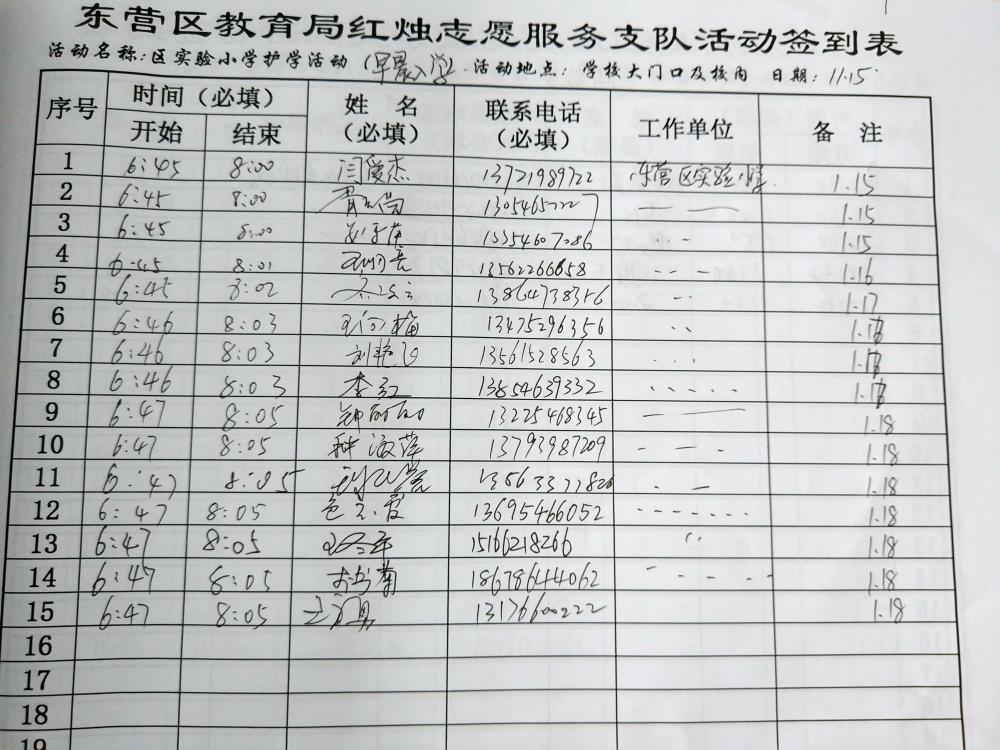 东营区教育局红烛志愿服务支队活动签到表
活动名称:区实验小学护学活动(早晨入学) 活动地点:学校大门口及校内 日期:11.15
序号 时间(必填) 姓名(必填) 联系电话(必填) 工作单位 备注
开始 结束
1 6:45 8:00 闫爱杰 13721989722 东营区实验小学 1.15
2 6:45 8:00 1.15
3 6:45 8:00 13354607086 1.15
4 6:45 8:01 13562266658 1.16
5 6:45 8:02 13864738356 1.17
6 6:46 8:03 13475296356 1.18
7 6:46 8:03 刘艳飞 13561528563 1.18
8 6:46 8:03 李红 13854639332 1.18
9 6:47 8:05 13225468345 1.18
10 6:47 8:05 种淑萍 13793987209 1.18
11 6:47 8:05 1.18
12 6:47 8:05 13695466052 1.18
13 6:47 8:05 15166218266 1.18
14 6:47 8:05 18678644062 1.18
15 6:47 8:05 13176600222 1.18
16
17
18
19